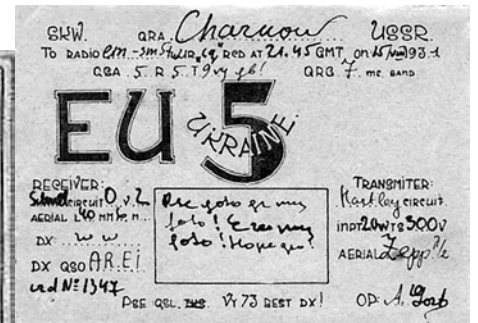 SKW. QRA. Charkow USSR.
TO RADIO em-sm UR "cq" RCD AT 21.45 GMT, ON 15/VIII 1931
QSA 5. R 5. T9 vy gb! QRG 7. MC BAND
EU 5
UKRAINE.
RECEIVER:
Schnell CIRCUIT O.v.2
AERIAL L 40 M
DX: W W
DX QSO AR.EI
crd № 1347
Pse foto
foto!
foto! Hope
TRANSMITER:
Hartley CIRCUIT.
INPT 20 WTS 300 V
AERIAL Zepp.
PSE QSL. TNS. VY 73 BEST DX! OP: A.